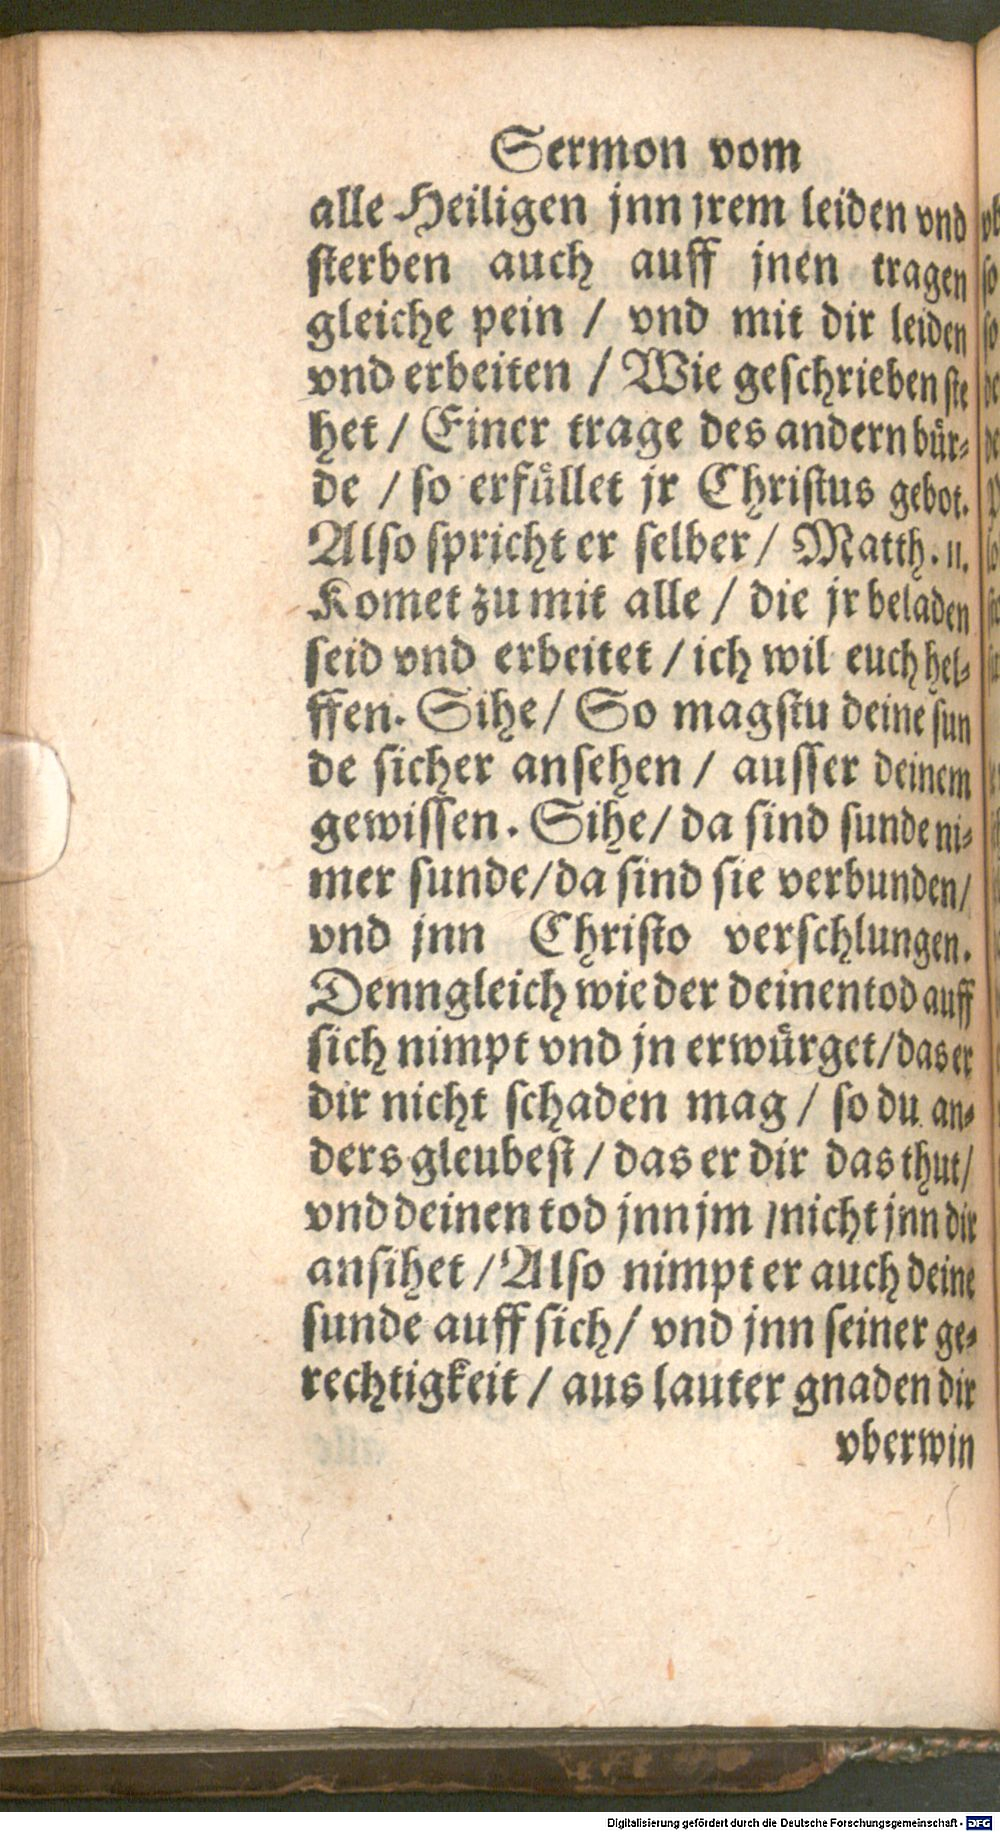 Sermon vom
alle Heiligen jnn jrem leiden vnd
sterben auch auff jnen tragen
gleiche pein / vnd mit dir leiden
vnd erbeiten / Wie geschrieben ste
het / Einer trage des andern bür-
de / so erfüllet jr Christus gebot.
Also spricht er selber / Matth. 11.
Komet zu mit alle / die jr beladen
seid vnd erbeitet / ich wil euch hel-
ffen. Sihe / So magstu deine sun
de sicher ansehen / ausser deinem
gewissen. Sihe / da sind sunde ni-
mer sunde / da sind sie verbunden /
vnd jnn Christo verschlungen.
Denn gleich wie der deinen tod auff
sich nimpt vnd jn erwürget / das er
dir nicht schaden mag / so du an-
ders gleubest / das er dir das thut /
vnd deinen tod jnn jm / nicht jnn dir
ansihet / Also nimpt er auch deine
sunde auff sich / vnd jnn seiner ge-
rechtigkeit / aus lauter gnaden dir
vberwin
Digitalisierung gefördert durch die Deutsche Forschungsgemeinschaft - DFG